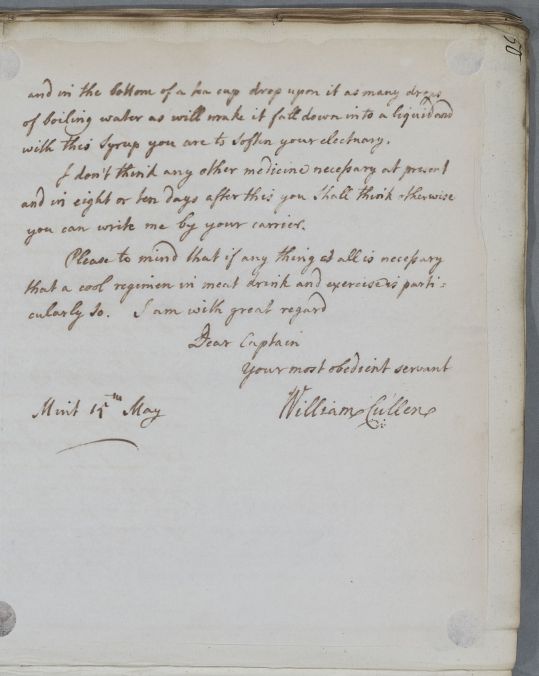 and in the bottom of a tea cup drop upon it as many drops
of boiling water as will make it fall down into a liquid and
with this Syrup you are to soften your electuary.
I don't think any other medicine necessary at present
and in eight or ten days after this you shall think otherwise
you can write me by your carrier.
Please to mind that if any thing at all is necessary
that a cool regimen in meat drink and exercise is parti=
cularly so. I am with great regard
Dear Captain
Your most obedient servant
William Cullen
Mint 15th May